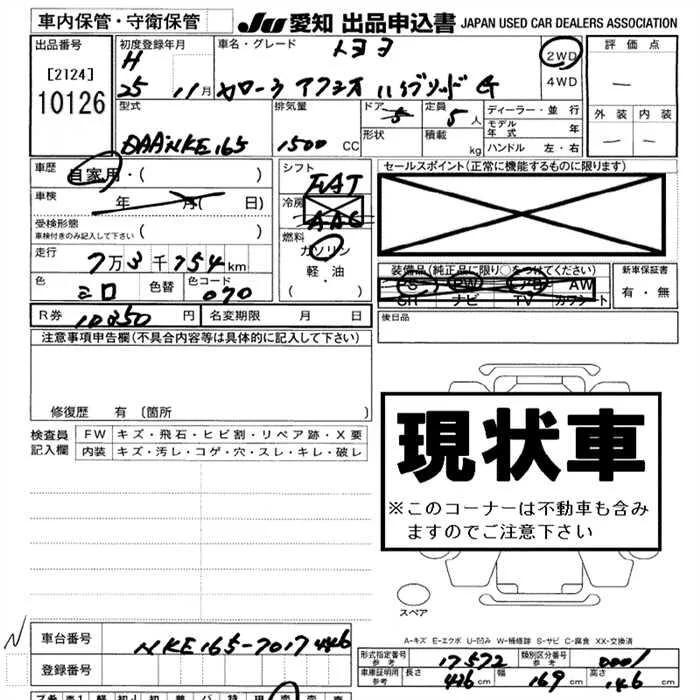 車内保管・守衛保管 JU愛知 出品申込書 JAPAN USED CAR DEALERS ASSOCIATION
出品番号 初度登録年月 車名・グレード トヨタ 2WD 評価点
[2124] H 4WD ―
10126 25 11月 カローラ アクシオ ハイブリッド G 外装 内装
型式 排気量 ドア 5 定員 5人 ディーラー・並行 ― ―
形状 積載 kg モデル年式 年
DAA-NKE165 1500 CC ハンドル 左・右
車歴 自家用・( ) シフト FAT セールスポイント(正常に機能するものに限ります)
車検 年 月( 日) 冷房 AAC
受検形態
車検付きのみ記入して下さい ( ) 燃料 ガソリン
走行 7万3千754km 軽・油 装備品(純正品に限り○をつけてください) 新車保証書
色 シロ 色替 色コード 070 ( ・ ) PS PW エアB AW 有・無
SR ナビ TV カワシート
R券 10250円 名変期限 月 日 後日品
注意事項申告欄(不具合内容等は具体的に記入して下さい)
修復歴 有 〔箇所 〕
検査員 FW キズ・飛石・ヒビ割・リペア跡・X要
記入欄 内装 キズ・汚レ・コゲ・穴・スレ・キレ・破レ
現状車
※このコーナーは不動車も含み
ますのでご注意下さい
スペア
A-キズ E-エクボ U-凹み W-補修跡 S-サビ C-腐食 XX-交換済
車台番号 NKE165-7017446
形式指定番号 参考 17572 類別区分番号 参考 0001
登録番号 車庫証明用 参考 長さ 436cm 幅 169cm 高さ 146cm